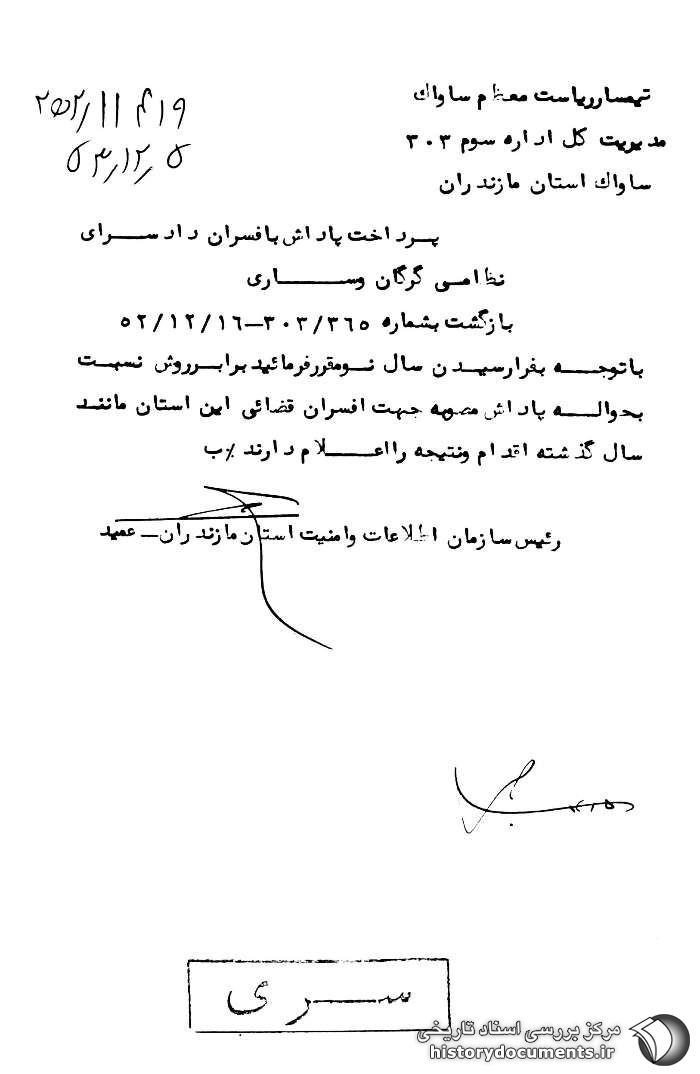 تیمسار ریاست معظم ساواک
مدیریت کل اداره سوم ۳۰۳
ساواک استان مازندران
۵۳٫۱۲٫۵
پرداخت پاداش بافسران دادسرای
نظامی گرگان و ساری
بازگشت بشماره ۳۰۳/۳۶۵–۵۲/۱۲/۱۶
باتوجه بفرارسیدن سال نو مقرر فرمائید برابر روش نسبت
بحواله پاداش مصوبه جهت افسران قضائی این استان مانند
سال گذشته اقدام ونتیجه را اعلام دارند٪ب
رئیس سازمان اطلاعات وامنیت استان مازندران– عمید
سری
مرکز بررسی اسناد تاریخی
historydocuments.ir